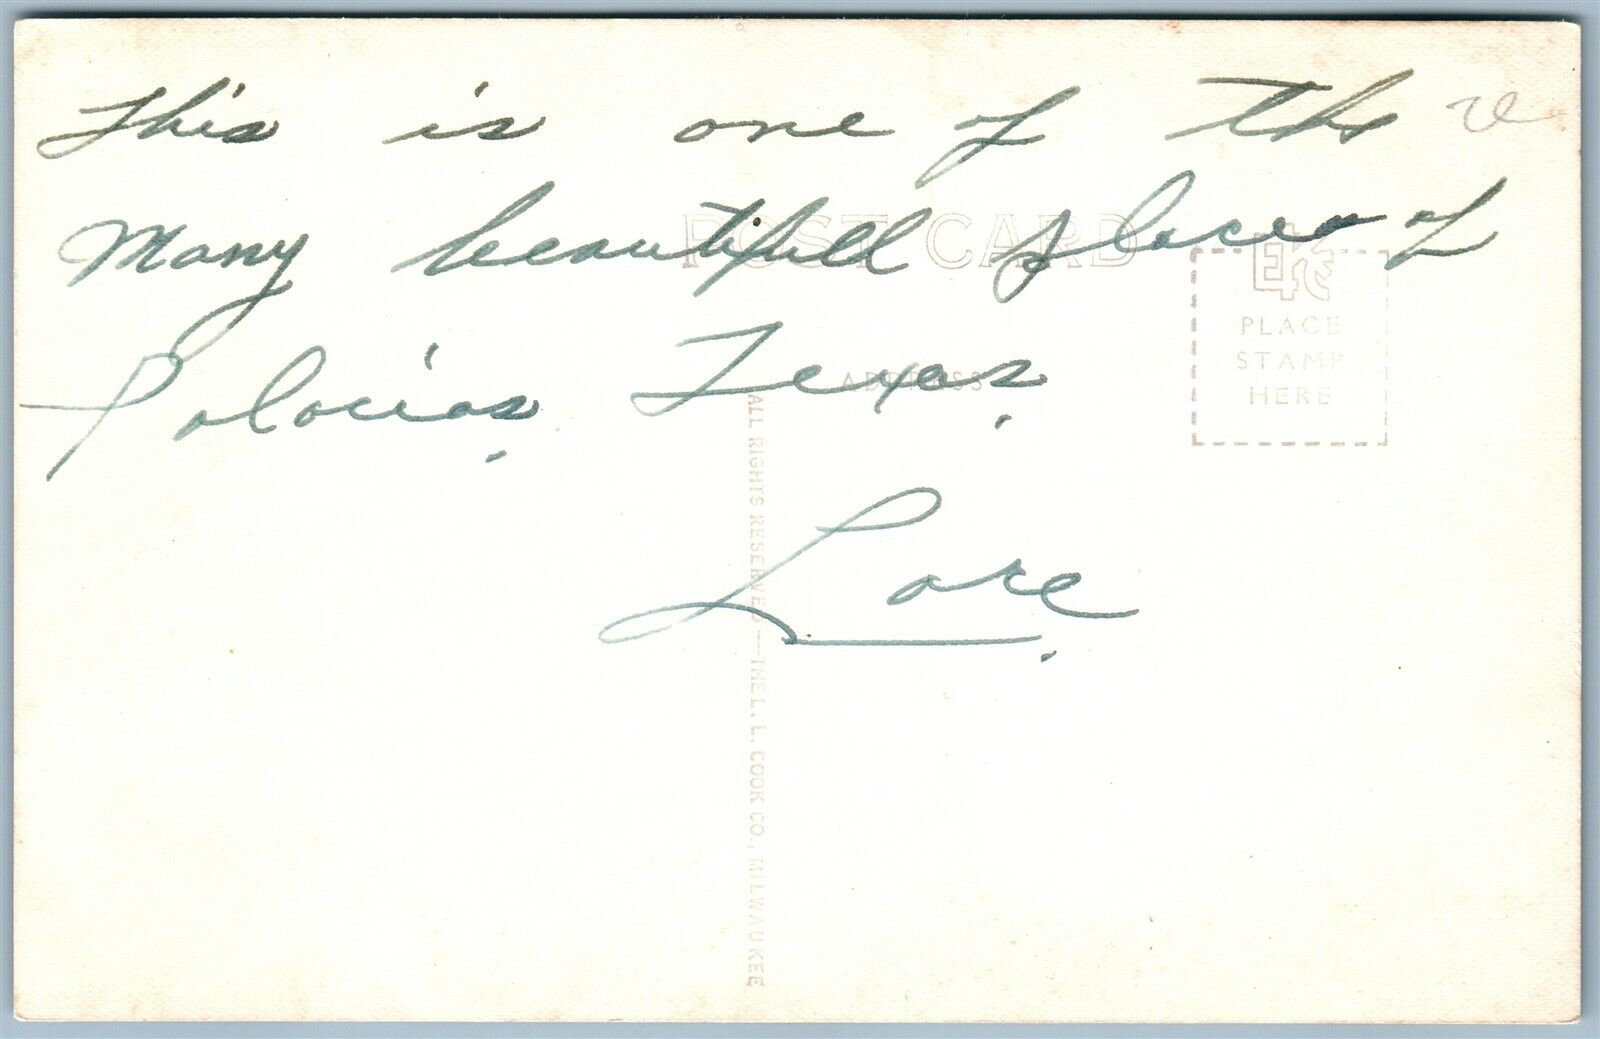 This is one of the
Many beautifull places of
Palacios, Texas.
Lore.
POST CARD
ADDRESS
EKC
PLACE
STAMP
HERE
ALL RIGHTS RESERVED—THE L. L. COOK CO., MILWAUKEE